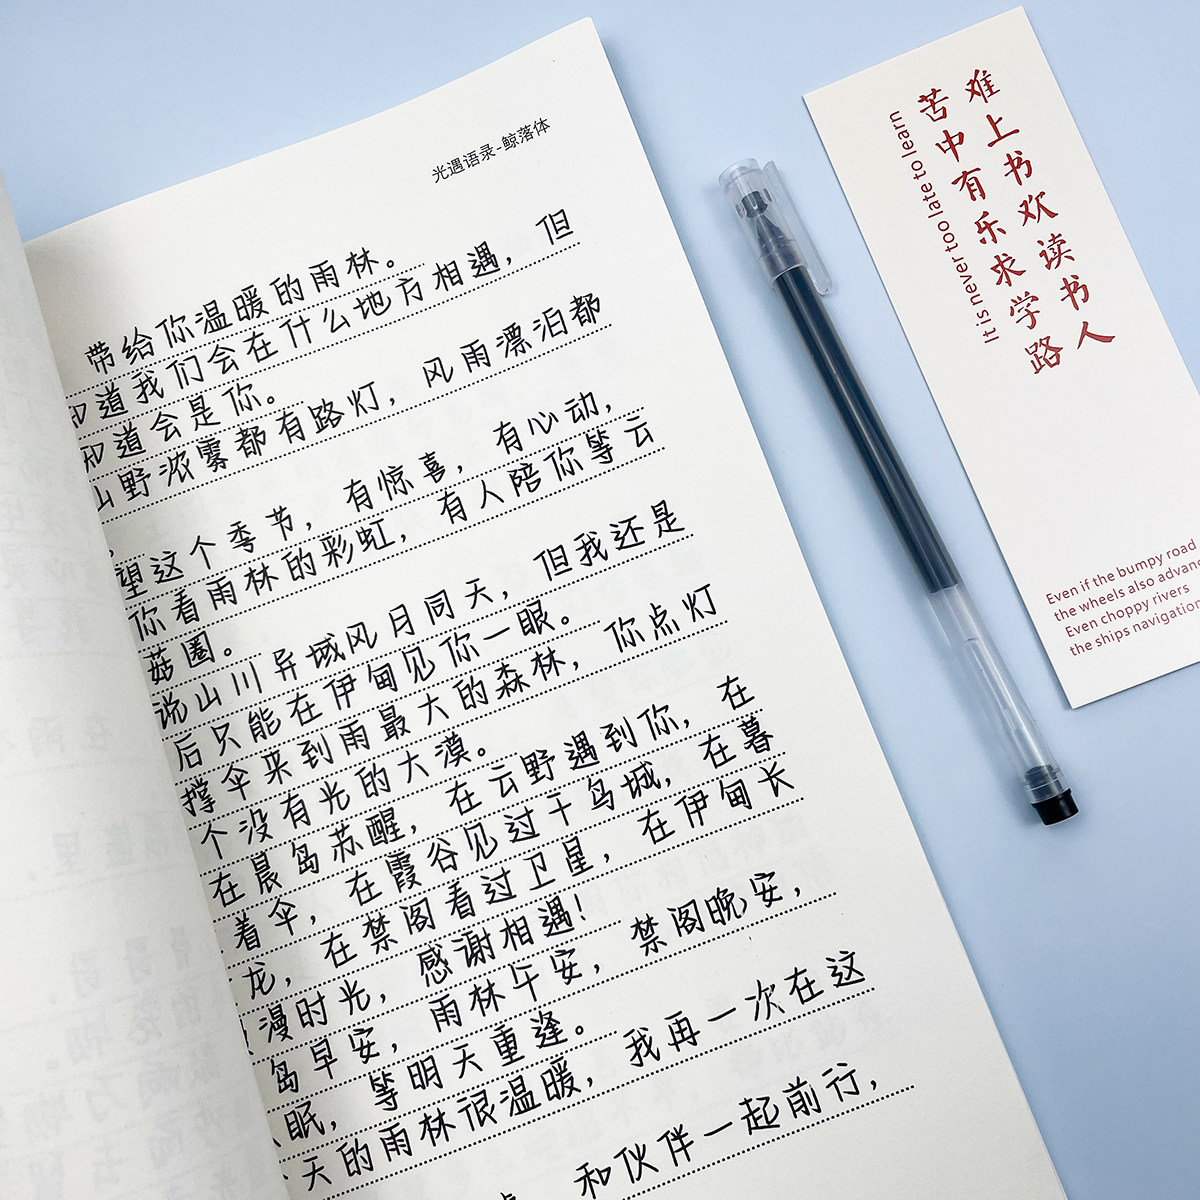 光遇语录-鲸落体
带给你温暖的雨林。
知道我们会在什么地方相遇，但
知道会是你。
山野浓雾都有路灯，风雨漂泊都
，
望这个季节，有惊喜，有心动，
你看雨林的彩虹，有人陪你等云
菇圈。
说山川异城风月同天，但我还是
后只能在伊甸见你一眼。
撑伞来到雨最大的森林，你点灯
个没有光的大漠。
在晨岛苏醒，在云野遇到你，在
着伞，在霞谷见过千鸟城，在暮
龙，在禁阁看过卫星，在伊甸长
漫时光，感谢相遇！
岛早安，雨林午安，禁阁晚安，
眠，等明天重逢。
天的雨林很温暖，我再一次在这
和伙伴一起前行，
难上书欢读书人
苦中有乐求学路
It is never too late to learn
Even if the bumpy road
the wheels also advan
Even choppy rivers
the ships navigation